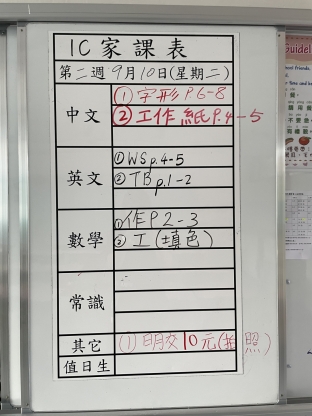 1C家課表
第二週 9月10日(星期二)
中文
① 字形 P.6-8
② 工作紙 P.4-5
英文
① WS p.4-5
② TB p.1-2
數學
① 作 P 2-3
② 工(填色)
常識
其它
(1) 明交10元(拍照)
值日生
Guideli